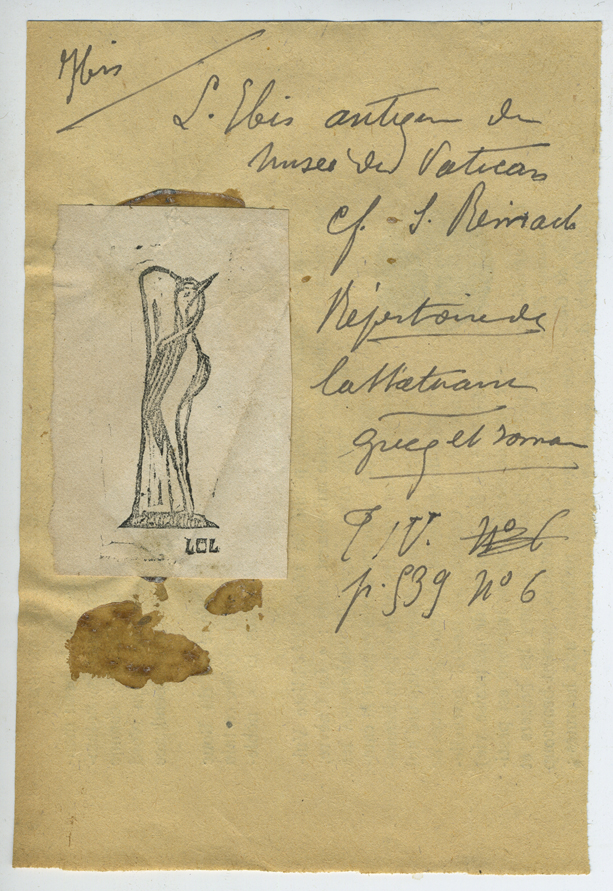 Ibis
L. Ibis antique du
Musee du Vatican
cf. S. Reinach
Répertoire de
la Statuaire
grecq et romain
T. IV. No 6
p. 539 no 6
LCL